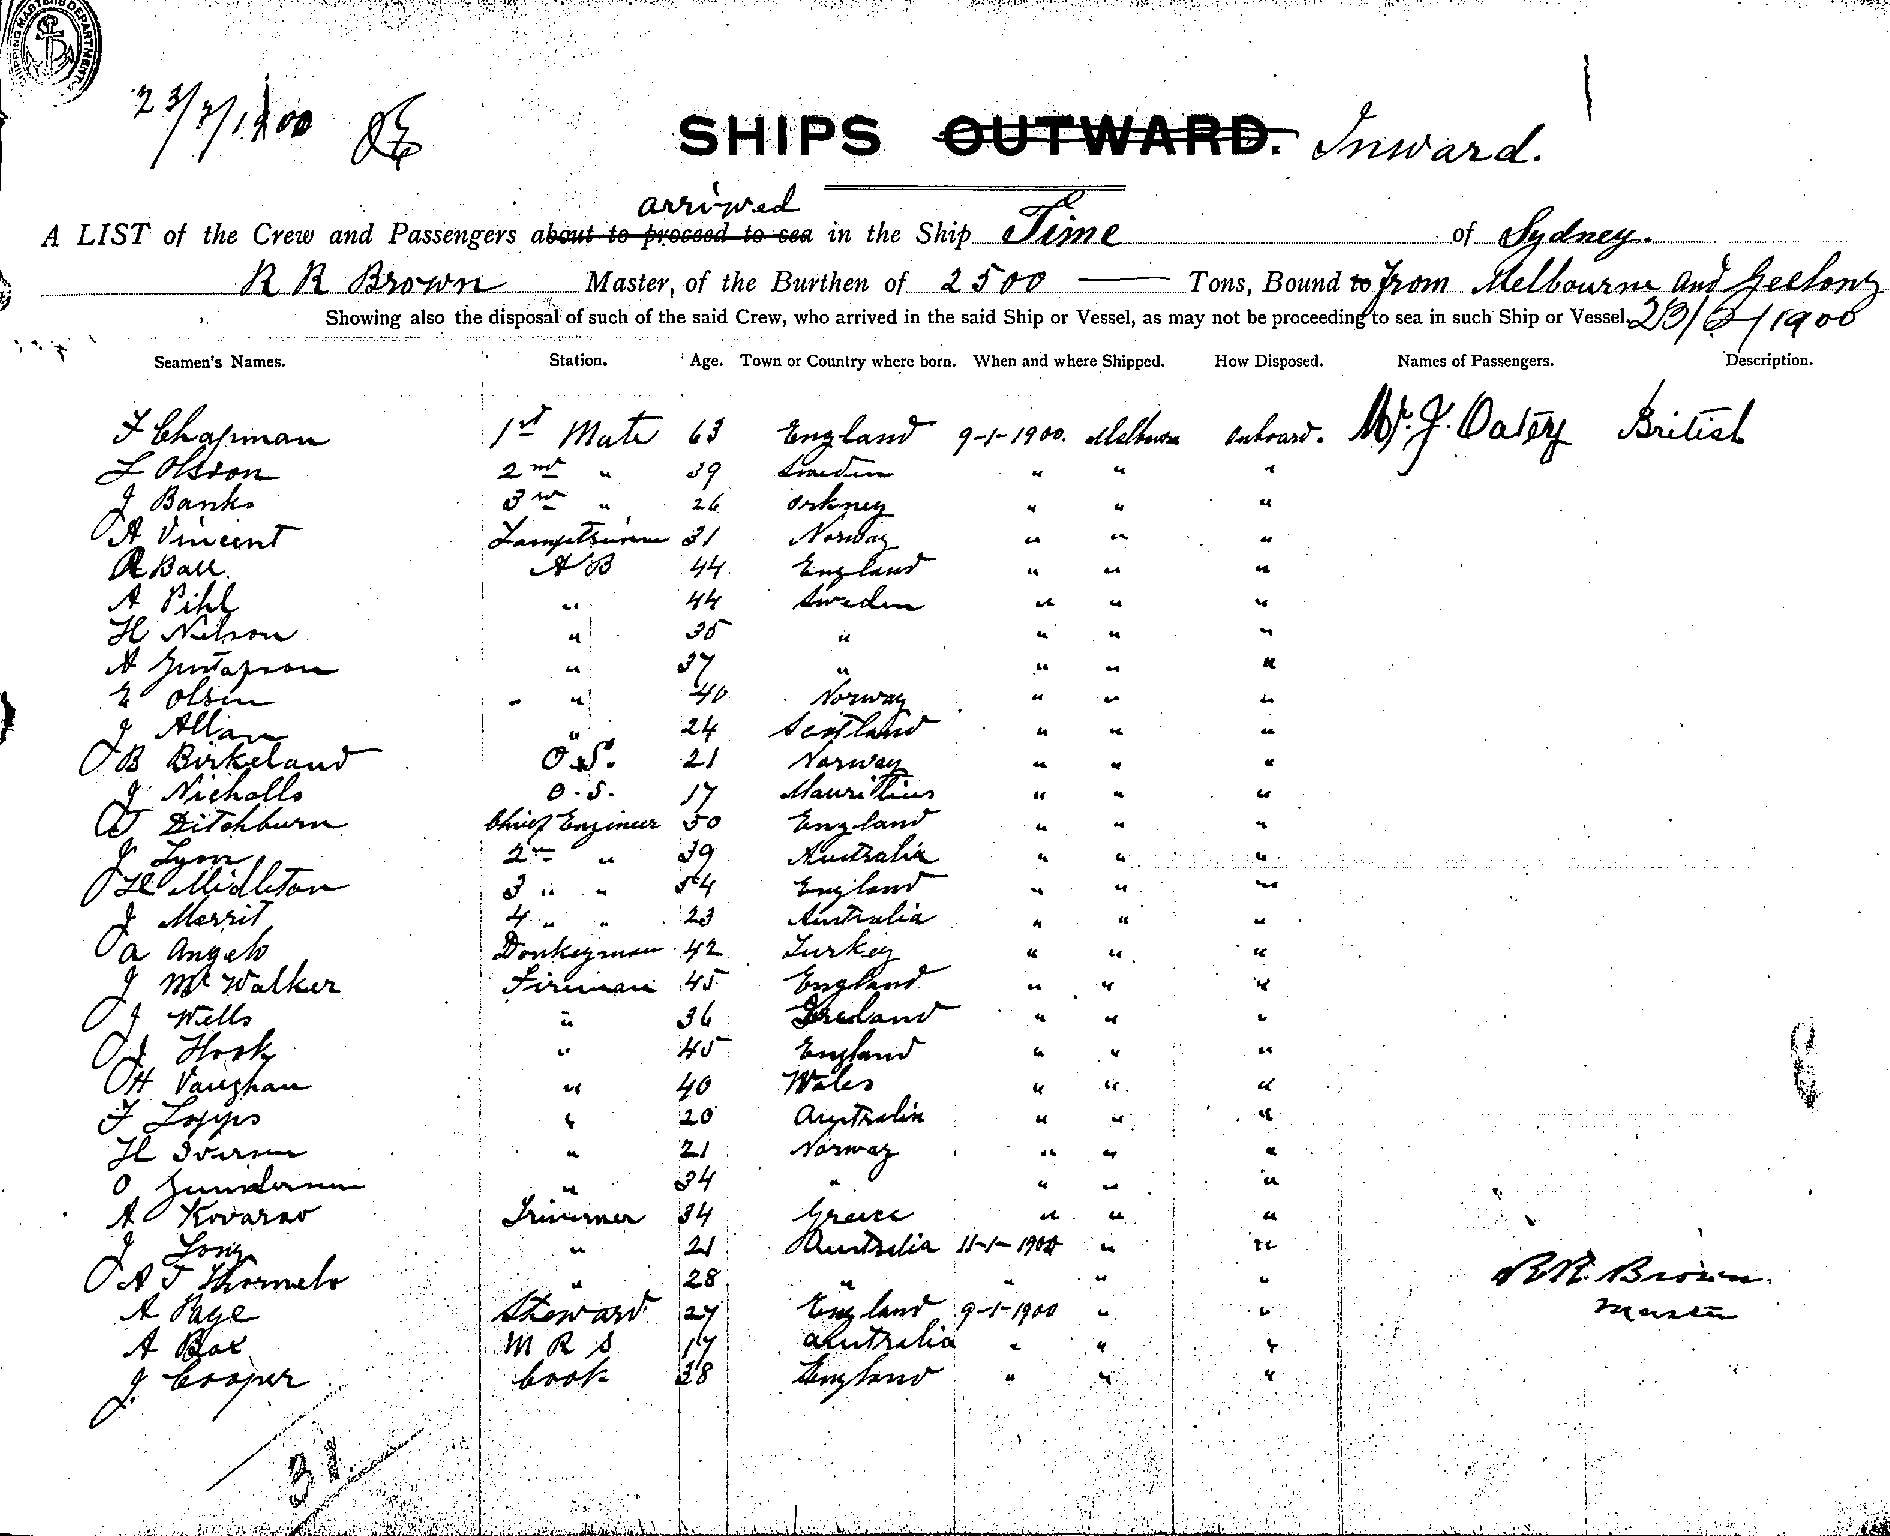 SHIPPING MASTERS DEPARTMENT
23/7/1900
SHIPS OUTWARD. Inward.
arrived
A LIST of the Crew and Passengers about to proceed to sea in the Ship Time of Sydney.
R R Brown Master, of the Burthen of 2500 Tons, Bound to from Melbourne and Geelong
Showing also the disposal of such of the said Crew, who arrived in the said Ship or Vessel, as may not be proceeding to sea in such Ship or Vessel. 1900
Seamen's Names. Station. Age. Town or Country where born. When and where Shipped. How Disposed. Names of Passengers. Description.
F Chapman 1st Mate 63 England 9-1-1900. Melbourne Onboard. Mr. J. Oatey British
L Olsson 2nd " 39 Sweden " " "
J Banks 3rd " 26 Orkney " " "
A Vincent Lamptrimmer 31 Norway " " "
R Ball A B 44 England " " "
A Pihl " 44 Sweden " " "
H Nelson " 35 " " " "
A Gustafson " 37 " " " "
E Olsen " 40 Norway " " "
J Allan " 24 Scotland " " "
B Birkeland O.S. 21 Norway " " "
J Nicholls O.S. 17 Mauritius " " "
J Ditchburn Chief Engineer 50 England " " "
J Lyon 2nd " 39 Australia " " "
H Midleton 3 " " 54 England " " "
J Merrit 4 " " 23 Australia " " "
A Angelo Donkeyman 42 Turkey " " "
J McWalker Fireman 45 England " " "
J Wells " 36 Ireland " " "
J Hook " 45 England " " "
H Vaughan " 40 Wales " " "
F Lopps " 20 Australia " " "
H Iversen " 21 Norway " " "
O Gundersen " 34 " " " "
A Kovarso Trimmer 34 Greece " " "
J Long " 21 Australia 11-1-1900 " "
A T Thornelo " 28 " " " "
R R. Brown.
A Page Steward 27 England 9-1-1900 " "
Master
A Box M R S 17 Australia " " "
J Cooper Cook 38 England " " "
31.